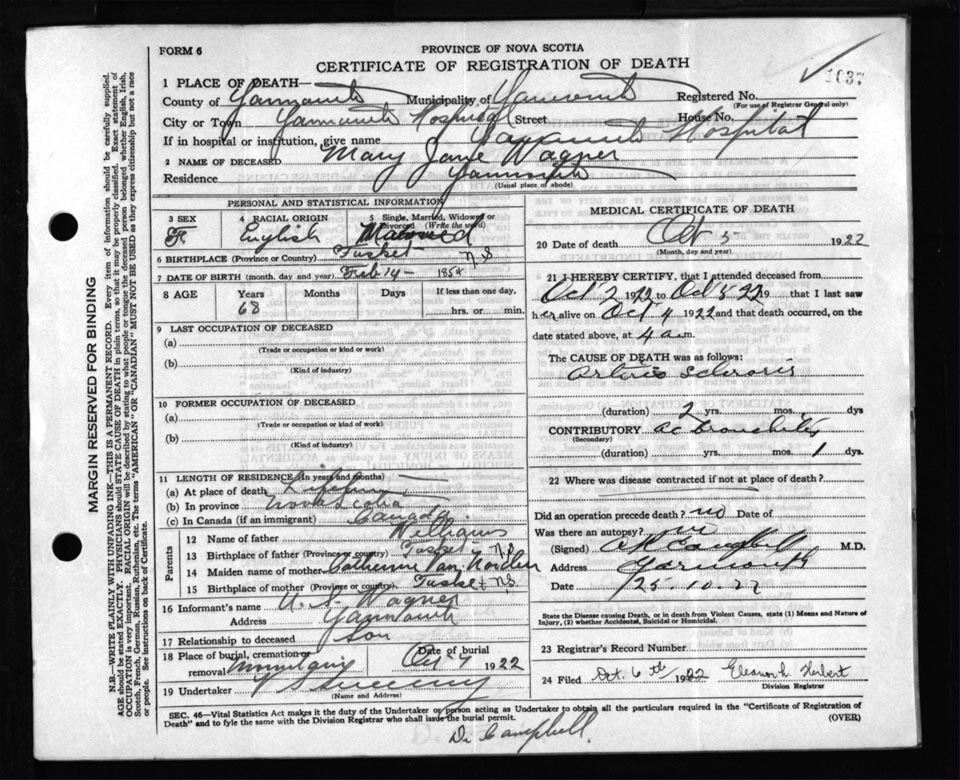 FORM 6
PROVINCE OF NOVA SCOTIA
CERTIFICATE OF REGISTRATION OF DEATH
1037
1 PLACE OF DEATH—
County of Yarmouth Municipality of Yarmouth Registered No.
(For use of Registrar General only)
City or Town Yarmouth Hospital Street House No.
If in hospital or institution, give name Yarmouth Hospital
2 NAME OF DECEASED Mary Jane Wagner
Residence Yarmouth
(Usual place of abode)
PERSONAL AND STATISTICAL INFORMATION
3 SEX F
4 RACIAL ORIGIN English
5 Single, Married, Widowed or Divorced (Write the word)
6 BIRTHPLACE (Province or Country) Tusket N S
7 DATE OF BIRTH (month, day and year) Feb 14 - 1854
8 AGE Years Months Days If less than one day,
68 hrs. or min.
9 LAST OCCUPATION OF DECEASED
(a)
(Trade or occupation or kind or work)
(b)
(Kind of industry)
10 FORMER OCCUPATION OF DECEASED
(a)
(Trade or occupation or kind of work)
(b)
(Kind of industry)
11 LENGTH OF RESIDENCE (in years and months)
(a) At place of death Lifetime
(b) In province Nova Scotia
(c) In Canada (if an immigrant) Canada
Parents
12 Name of father Williams
13 Birthplace of father (Province or country) Tusket N.S
14 Maiden name of mother Catherine Van Norden
15 Birthplace of mother (Province or country) Tusket N.S.
16 Informant's name Wagner
Address Yarmouth
17 Relationship to deceased Son
18 Place of burial, cremation or removal Date of burial
Oct 7 1922
19 Undertaker V S Sweeny
(Name and Address)
MEDICAL CERTIFICATE OF DEATH
20 Date of death Oct 5 1922
(Month, day and year)
21 I HEREBY CERTIFY, that I attended deceased from
Oct 2 1922 to Oct 5 22 19 that I last saw
her alive on Oct 4 1922 and that death occurred, on the
date stated above, at 4 a.m.
The CAUSE OF DEATH was as follows:
Arterio Sclerosis
(duration) 2 yrs. mos. dys
CONTRIBUTORY ac bronchitis
(Secondary)
(duration) yrs. mos. 1 dys.
22 Where was disease contracted if not at place of death?
Did an operation precede death? no Date of
Was there an autopsy? no
(Signed) Campbell M.D.
Address Yarmouth
Date 25-10-22
State the Disease causing Death, or in death from Violent Causes, state (1) Means and Nature of
Injury, (2) whether Accidental, Suicidal or Homicidal.
23 Registrar's Record Number
24 Filed Oct. 6th 1922 Eleanor L. Herbert
Division Registrar
SEC. 46—Vital Statistics Act makes it the duty of the Undertaker or person acting as Undertaker to obtain all the particulars required in the "Certificate of Registration of
Death" and to fyle the same with the Division Registrar who shall issue the burial permit.
(OVER)
Dr Campbell.
MARGIN RESERVED FOR BINDING
N.B.—WRITE PLAINLY WITH UNFADING INK—THIS IS A PERMANENT RECORD. Every item of information should be carefully supplied.
AGE should be stated EXACTLY. PHYSICIANS should STATE CAUSE OF DEATH in plain terms, so that it may be properly classified. Exact statement of
OCCUPATION is very important. RACIAL ORIGIN will be described by stating to what people or tongue the deceased person belonged whether English, Irish,
Scotch, French, German, Russian, Ruthenian, etc. The terms "AMERICAN" OR "CANADIAN" MUST NOT BE USED as they express citizenship but not a race
or people. See instructions on back of Certificate.